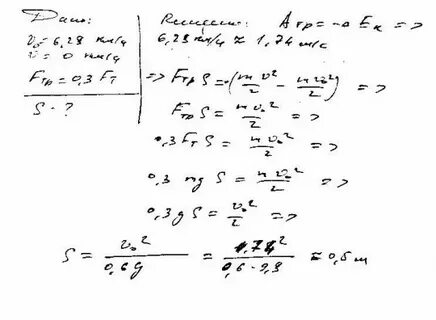 Дано:
v₀ = 6,28 км/ч
v = 0 км/ч
Fтр = 0,3 Fт
S - ?
Решение: Aтр = -ΔEк =>
6,28 км/ч ≈ 1,74 м/с
=> Fтр S = -(mv²/2 - mv₀²/2) =>
Fтр S = mv₀²/2 =>
0,3 Fт S = mv₀²/2 =>
0,3 mg S = mv₀²/2 =>
0,3 g S = v₀²/2 =>
S = v₀²/0,6g = 1,74²/0,6·9,8 ≈ 0,5 м